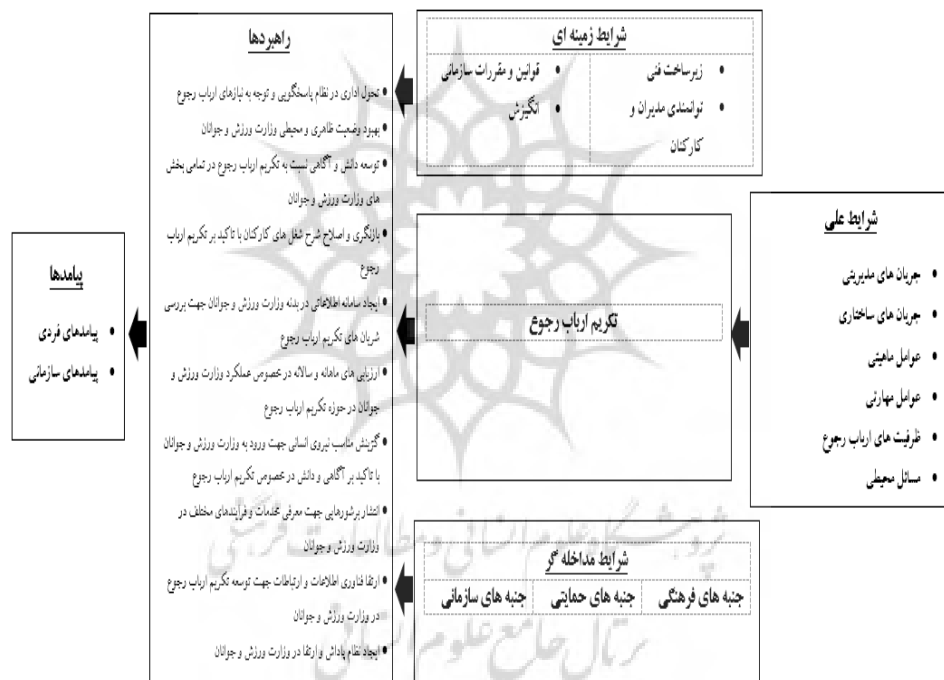 شرایط علی
جریان های مدیریتی
جریان های ساختاری
عوامل ماهیتی
عوامل مهارتی
ظرفیت های ارباب رجوع
مسائل محیطی
شرایط زمینه ای
زیرساخت فنی
توانمندی مدیران و
کارکنان
قوانین و مقررات سازمانی
انگیزش
تکریم ارباب رجوع
شرایط مداخله گر
جنبه های فرهنگی
جنبه های حمایتی
جنبه های سازمانی
راهبردها
تحول اداری در نظام پاسخگویی و توجه به نیازهای ارباب رجوع
بهبود وضعیت ظاهری و محیطی وزارت ورزش و جوانان
توسعه دانش و آگاهی نسبت به تکریم ارباب رجوع در تمامی بخش
های وزارت ورزش و جوانان
بازنگری و اصلاح شرح شغل های کارکنان با تاکید بر تکریم ارباب
رجوع
ایجاد سامانه اطلاعاتی در بدنه وزارت ورزش و جوانان جهت بررسی
شریان های تکریم ارباب رجوع
ارزیابی های ماهانه و سالانه در خصوص عملکرد وزارت ورزش و
جوانان در حوزه تکریم ارباب رجوع
گزینش مناسب نیروی انسانی جهت ورود به وزارت ورزش و جوانان
با تاکید بر آگاهی و دانش در خصوص تکریم ارباب رجوع
انتشار برشورهایی جهت معرفی خدمات و فرآیندهای مختلف در
وزارت ورزش و جوانان
ارتقا فناوری اطلاعات و ارتباطات جهت توسعه تکریم ارباب رجوع
در وزارت ورزش و جوانان
ایجاد نظام پاداش و ارتقا در وزارت ورزش و جوانان
پیامدها
پیامدهای فردی
پیامدهای سازمانی
پژوهشگاه علوم انسانی و مطالعات فرهنگی
پرتال جامع علوم انسانی